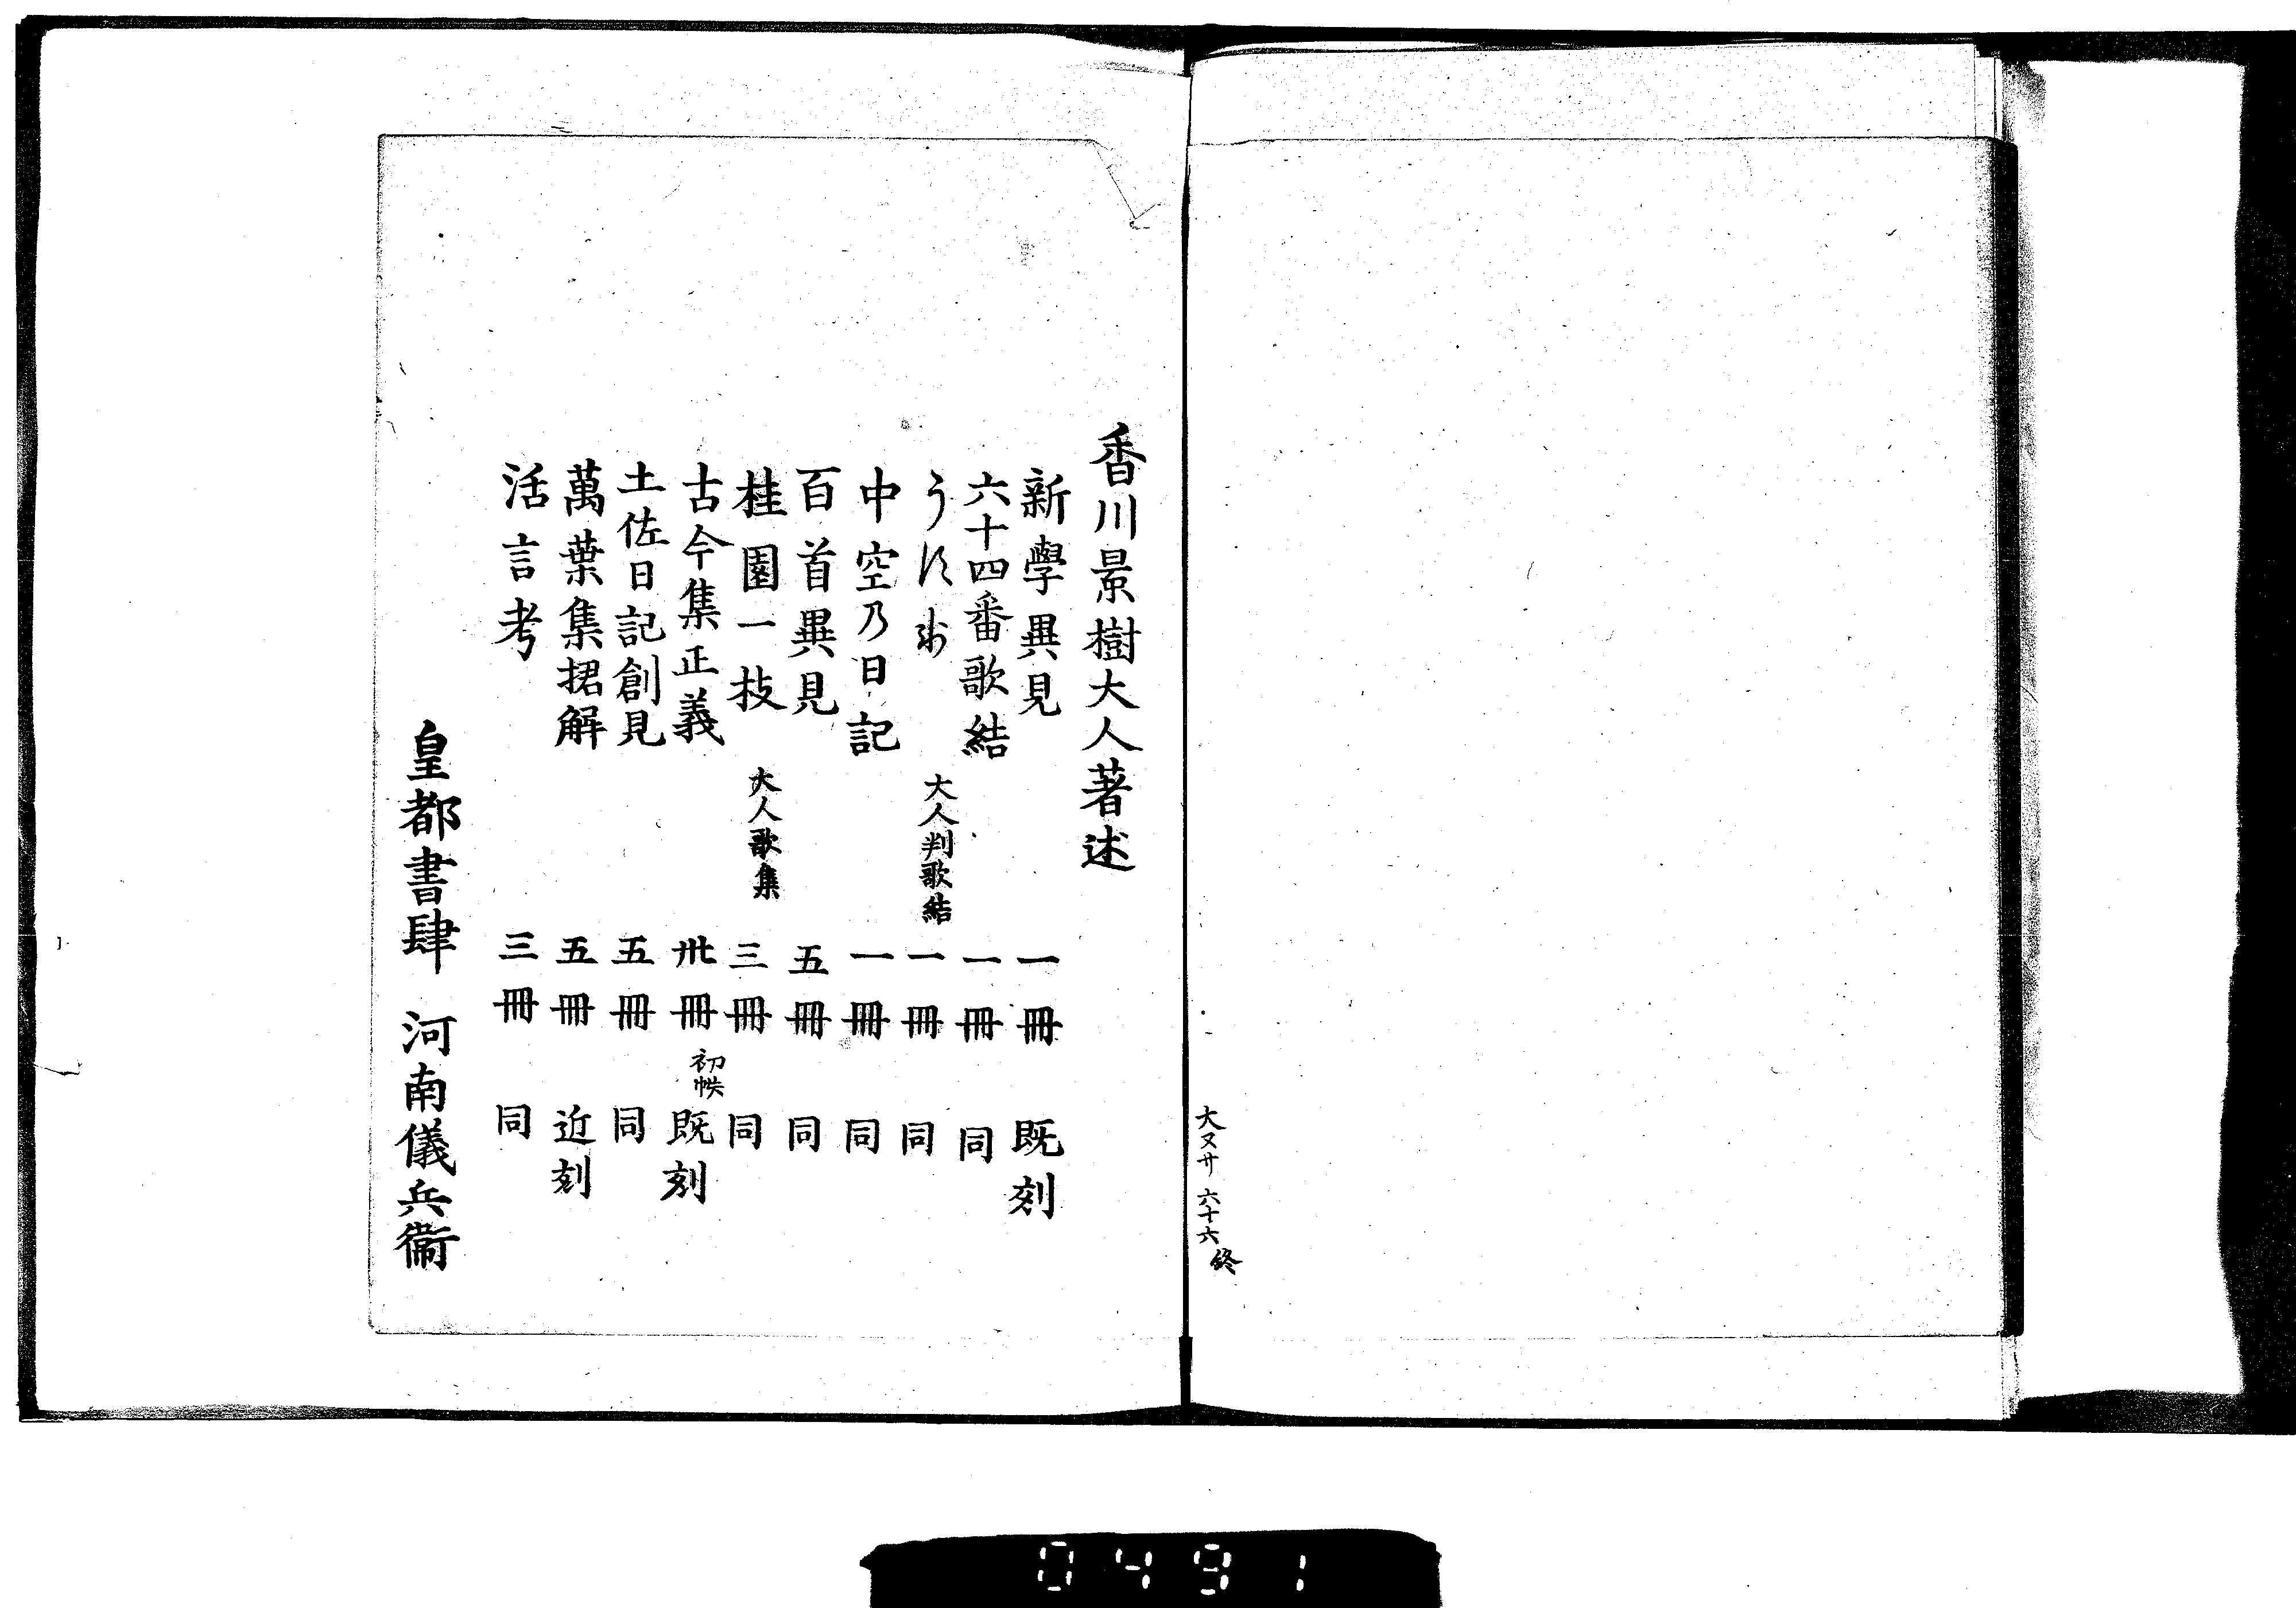 大ヌサ 六十六終
香川景樹大人著述
新學異見 一冊 既刻
六十四番歌結 一冊 同
大人判歌結 一冊 同
中空乃日記 一冊 同
百首異見 五冊 同
桂園一枝 大人歌集 三冊 同
古今集正義 卅冊 初帙 既刻
土佐日記創見 五冊 同
萬葉集捃解 五冊 近刻
活言考 三冊 同
皇都書肆 河南儀兵衞
0491